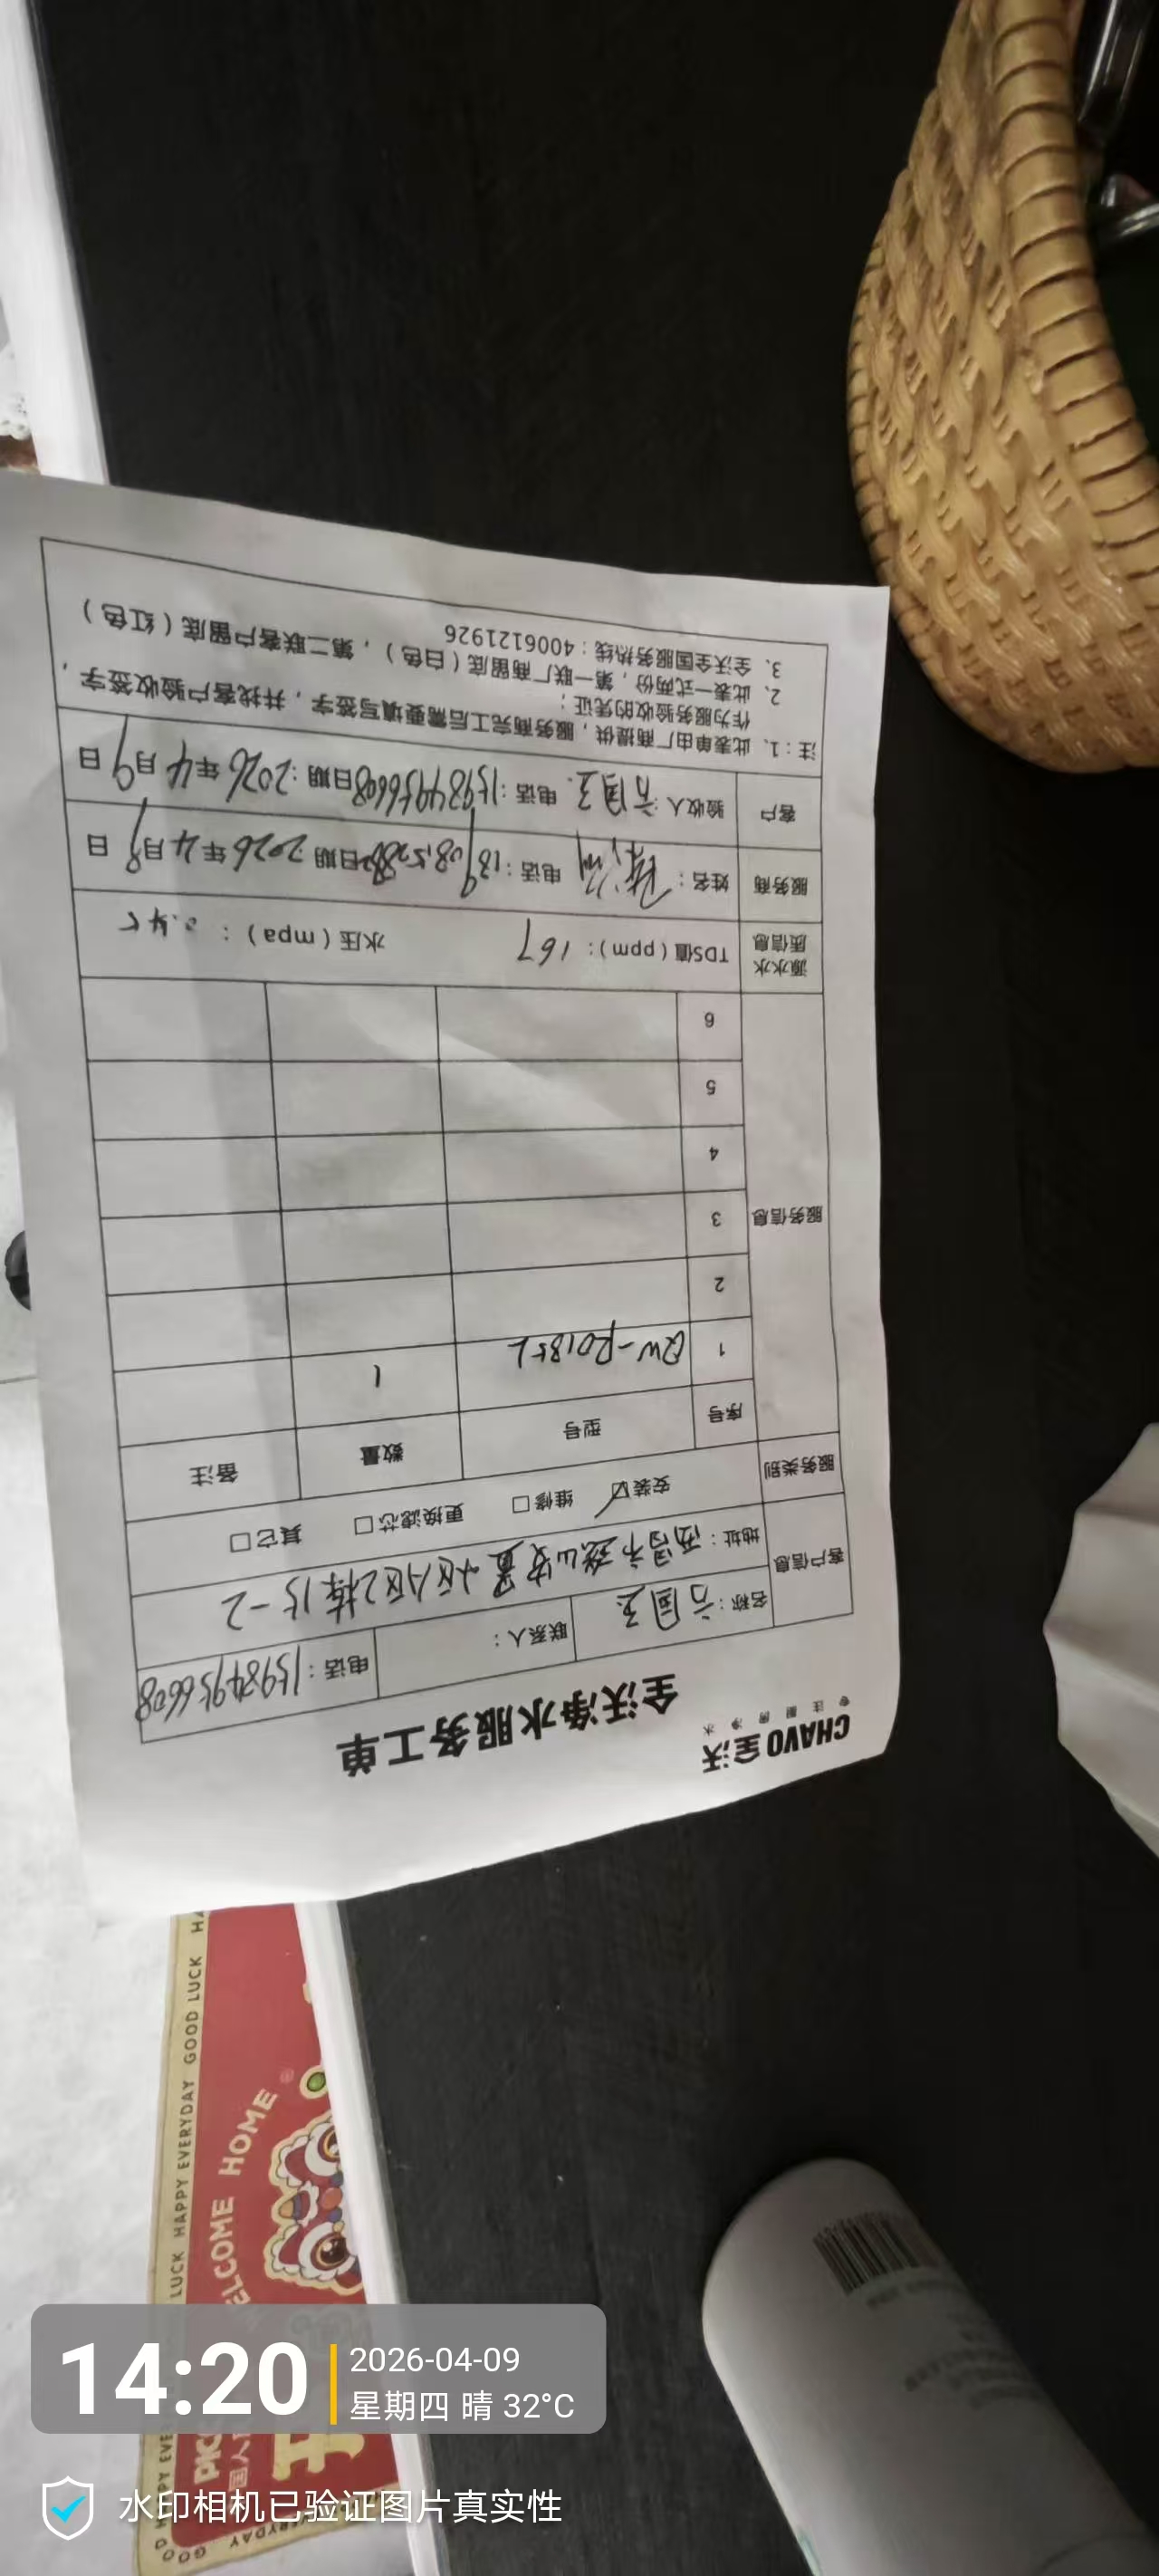 CHAVO 全沃
专注厨房净水
全沃净水服务工单
客户信息
名称：方国玉 联系人： 电话：15984956608
地址：西昌市 安置小区A区2栋15-2
服务类别 安装☑ 维修□ 更换滤芯□ 其它□
服务信息
序号 型号 数量 备注
1 QW-R0185L 1
2
3
4
5
6
源水水质信息 TDS值（ppm）：167 水压（mpa）：0.45
服务商 姓名： 电话： 日期 2026年4月9日
客户 验收人：方国玉 电话：15984956608 日期：2026年4月9日
注：1、此表单由厂商提供，服务商完工后需要填写签字，并找客户验收签字，
作为服务验收的凭证；
2、此表一式两份，第一联厂商留底（白色），第二联客户留底（红色）
3、全沃全国服务热线：4006121926
GOOD LUCK
HAPPY EVERYDAY
LUCK
WELCOME HOME
14:20
2026-04-09
星期四 晴 32°C
水印相机已验证图片真实性